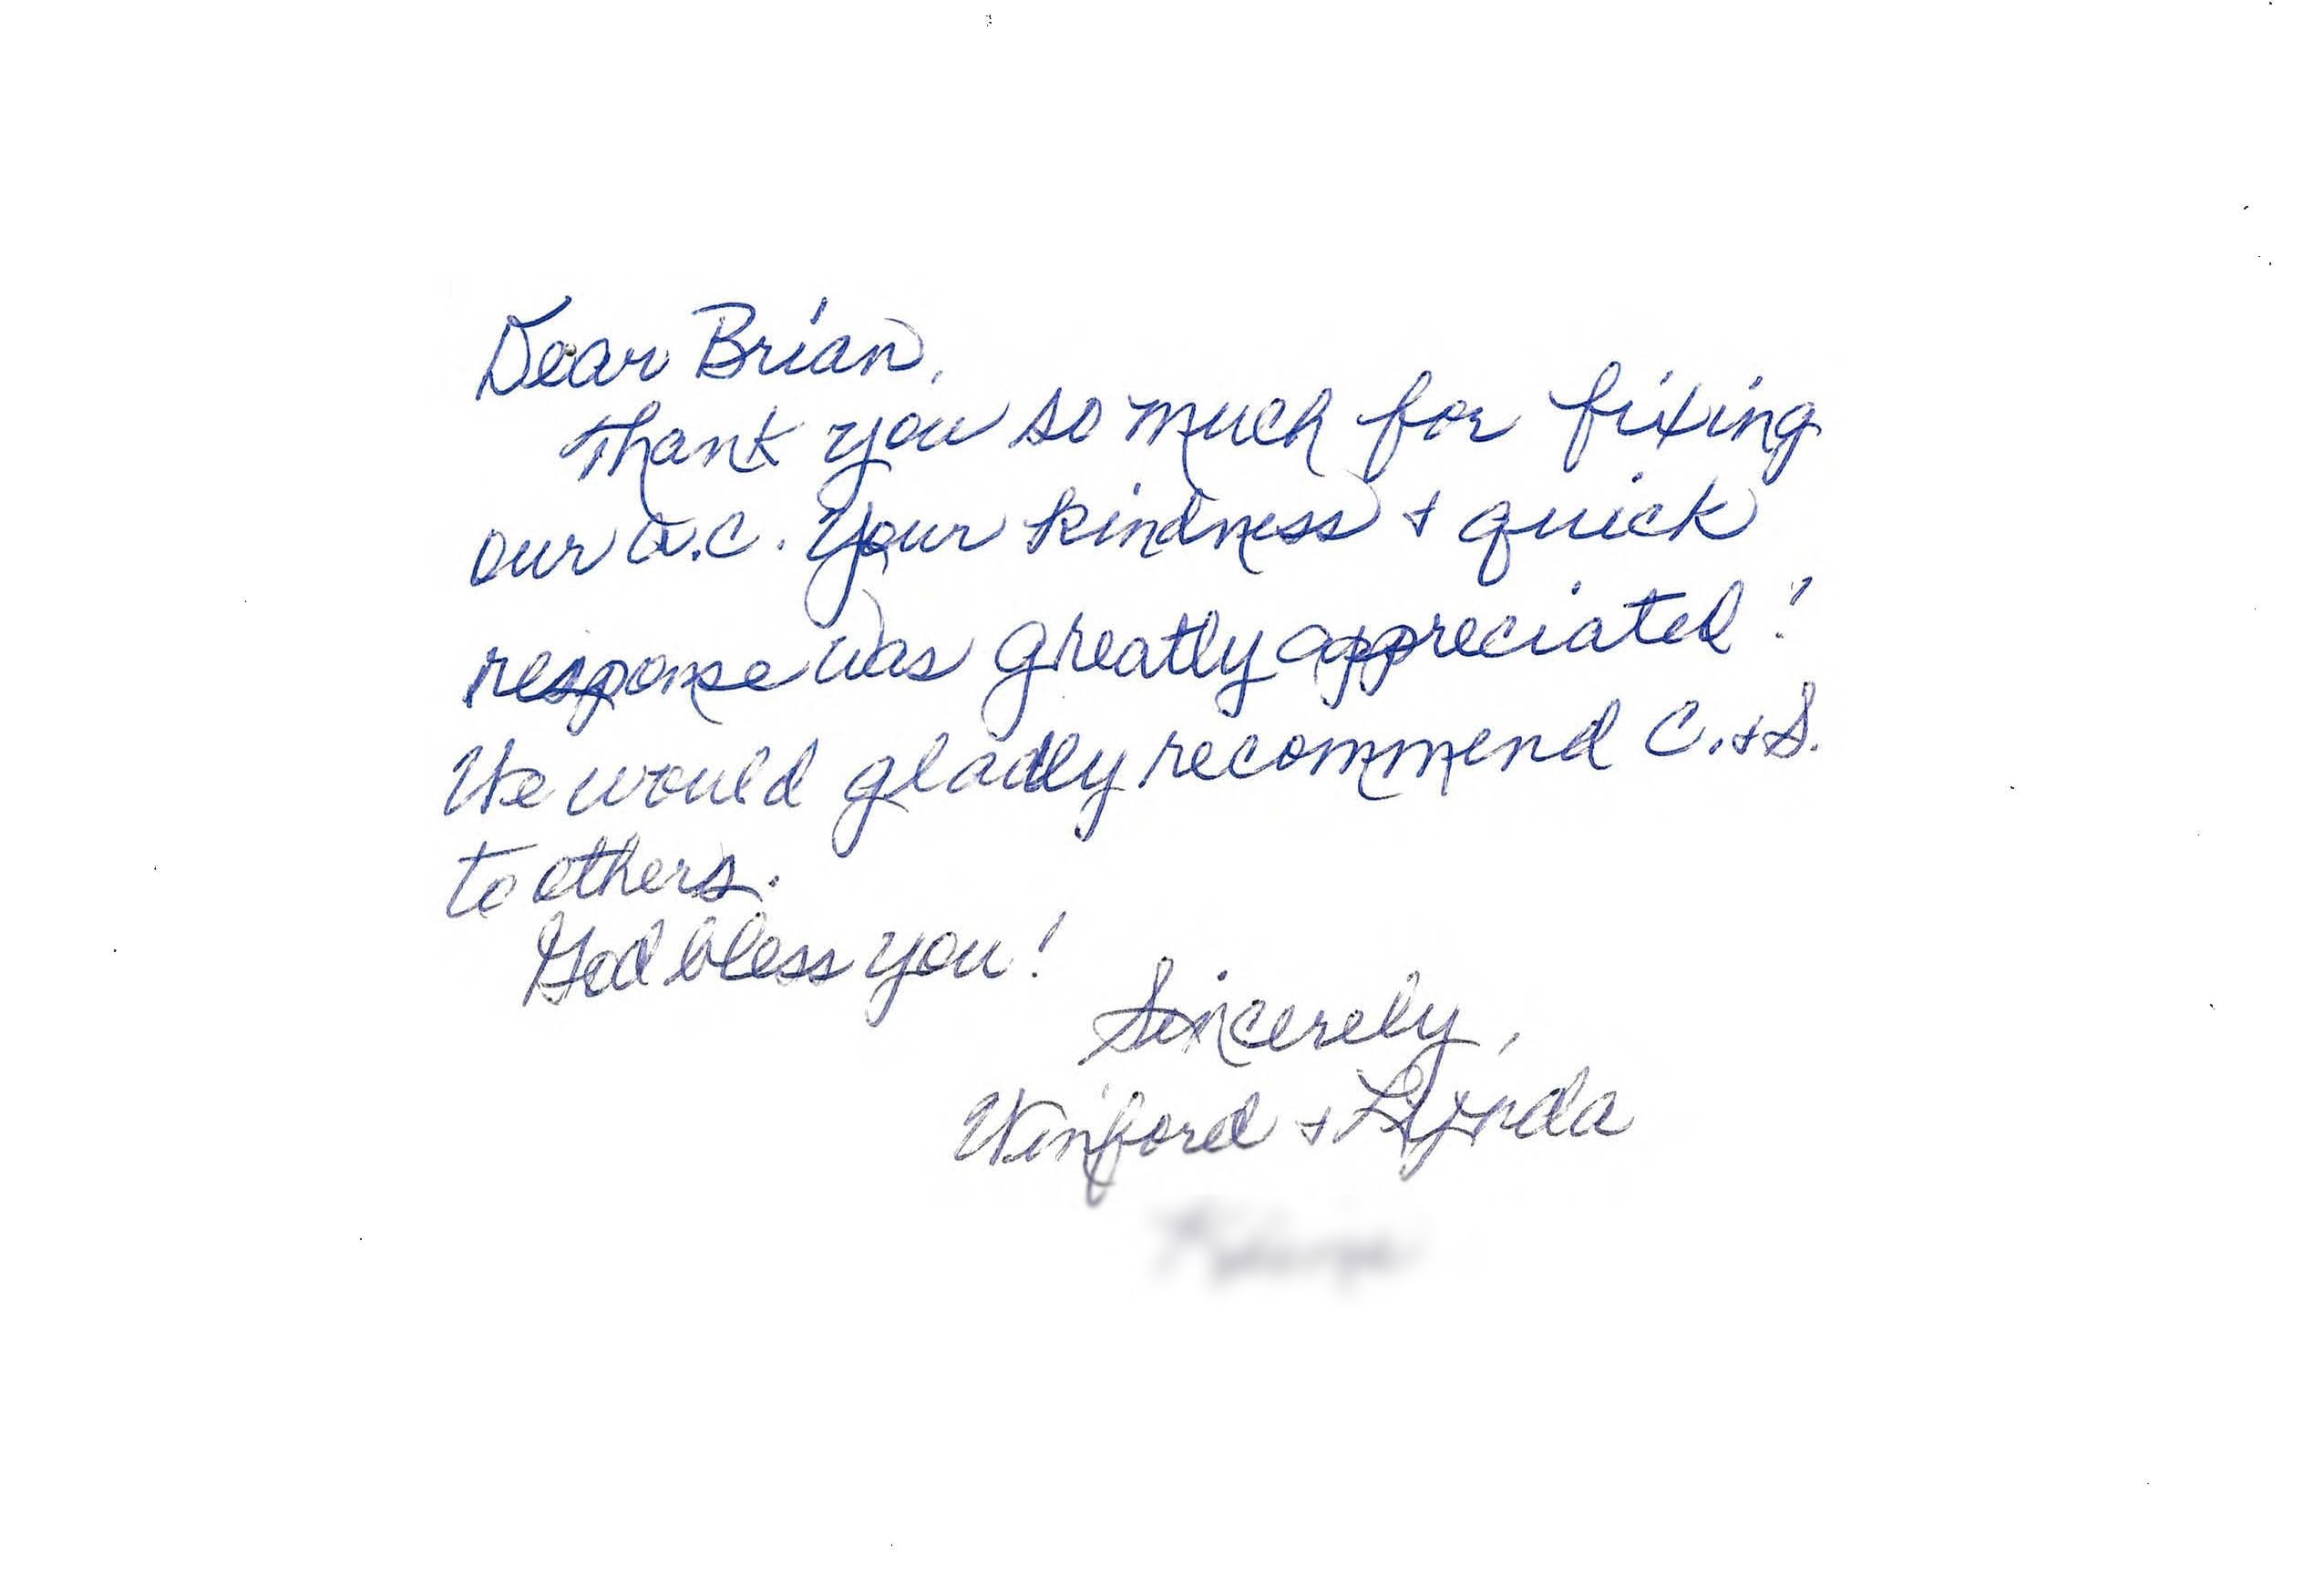 Dear Brian,
Thank you so much for fixing
our a.c. Your kindness + quick
response was greatly appreciated!
We would gladly recommend C.+S.
to others.
God bless you!
Sincerely,
Winford + Lynda